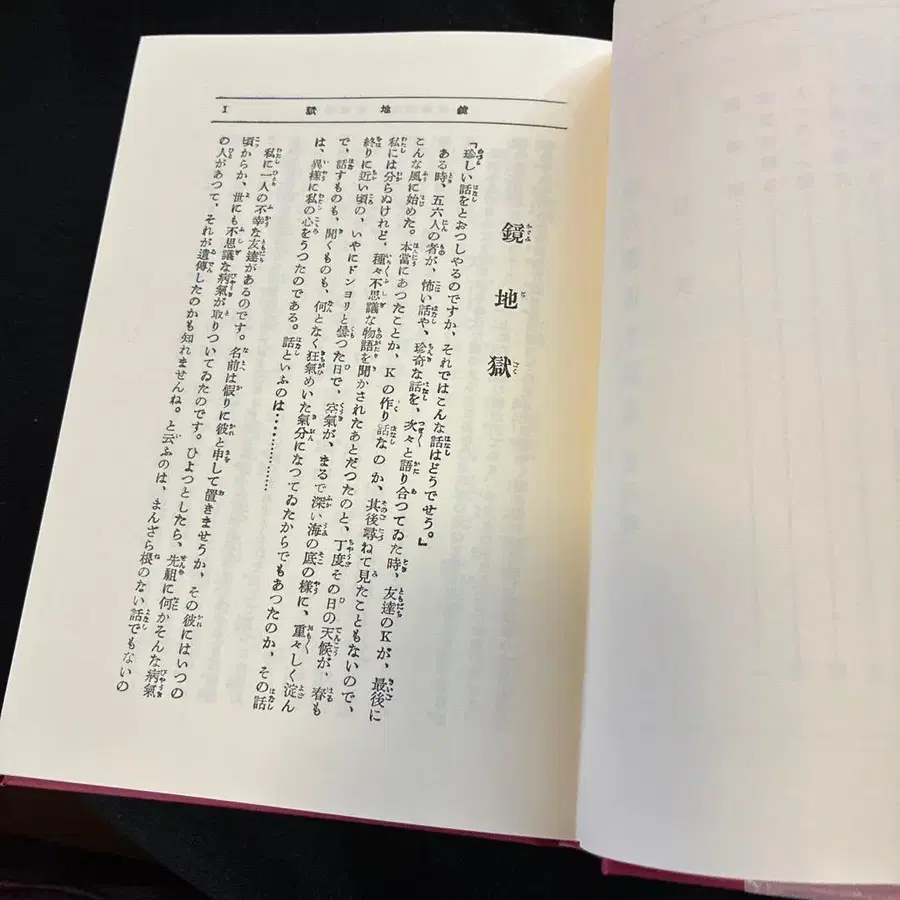 鏡地獄 1
鏡地獄
「珍しい話をとおつしやるのですか、それではこんな話はどうでせう。』
ある時、五六人の者が、怖い話や、珍奇な話を、次々と語り合つてゐた時、友達のKが、最後に
こんな風に始めた。本當にあつたことか、Kの作り話なのか、其後尋ねて見たこともないので、
私には分らぬけれど、種々不思議な物語を聞かされたあとだつたのと、丁度その日の天候が、春も
終りに近い頃の、いやにドンヨリと曇つた日で、空氣が、まるで深い海の底の樣に、重々しく淀ん
で、話すものも、聞くものも、何となく狂氣めいた氣分になつてゐたからでもあつたのか、その話
は、異樣に私の心をうつたのである。話といふのは…………
私に一人の不幸な友達があるのです。名前は假りに彼と申して置きませうか、その彼にはいつの
頃からか、世にも不思議な病氣が取りついてゐたのです。ひよつとしたら、先祖に何かそんな病氣
の人があつて、それが遺傳したのかも知れませんね。と云ふのは、まんざら根のない話でもないの